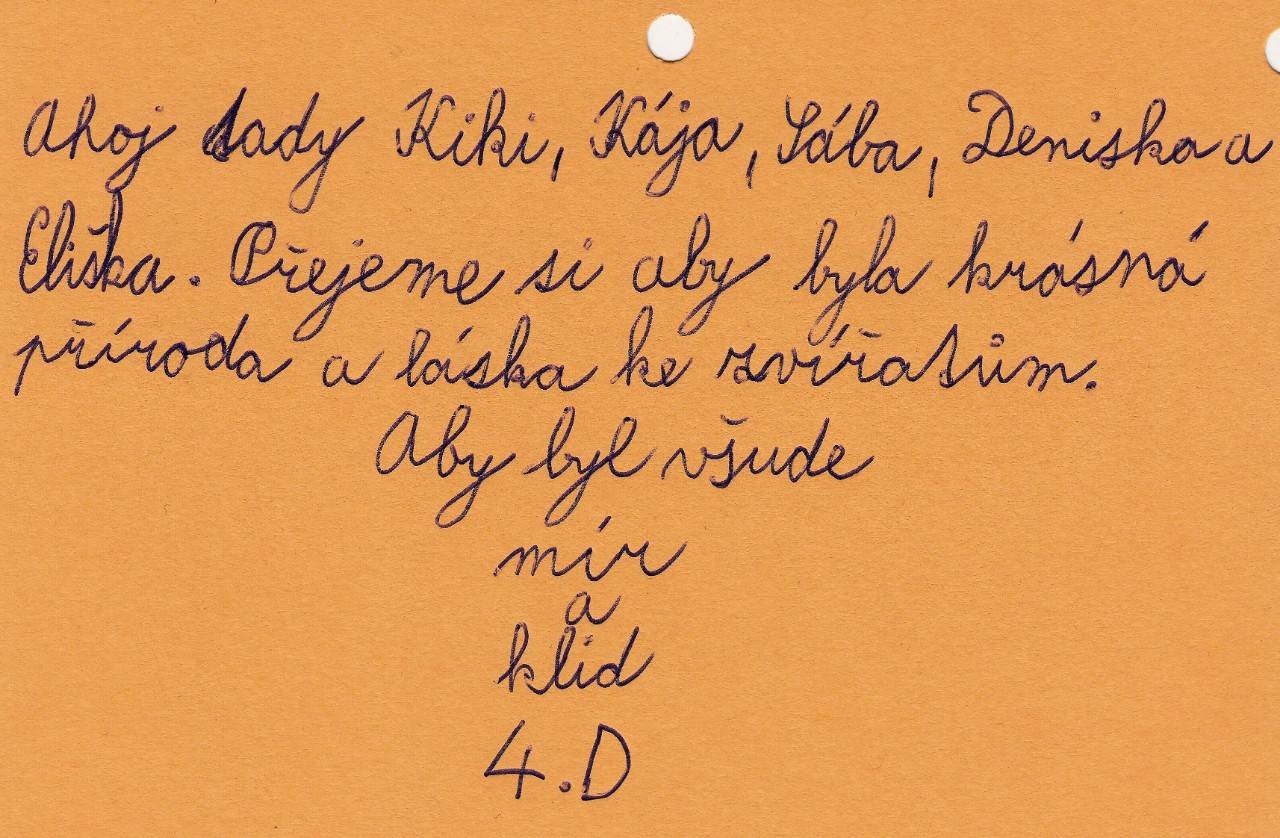 Ahoj tady Kiki, Kája, Sába, Deniska a
Eliška. Přejeme si aby byla krásná
příroda a láska ke zvířatům.
Aby byl všude
mír
a
klid
4.D